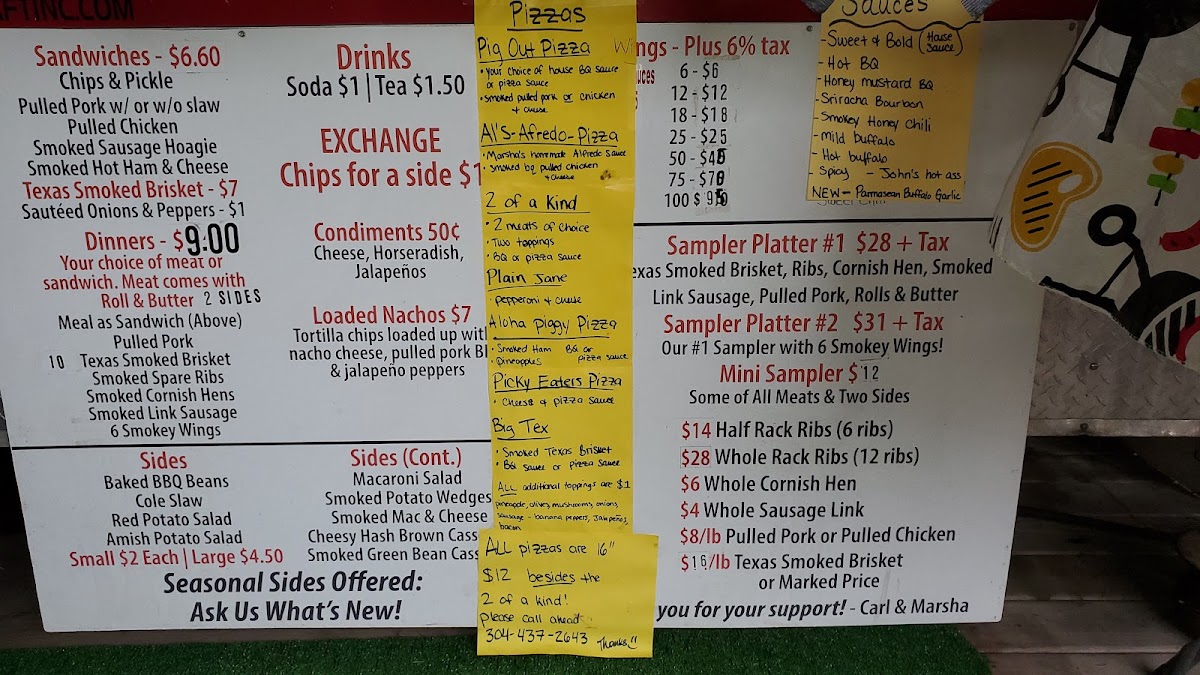 FTINC.COM
Sandwiches - $6.60
Chips & Pickle
Pulled Pork w/ or w/o slaw
Pulled Chicken
Smoked Sausage Hoagie
Smoked Hot Ham & Cheese
Texas Smoked Brisket - $7
Sautéed Onions & Peppers - $1
Dinners - $9.00
Your choice of meat or
sandwich. Meat comes with
Roll & Butter 2 SIDES
Meal as Sandwich (Above)
Pulled Pork
10 Texas Smoked Brisket
Smoked Spare Ribs
Smoked Cornish Hens
Smoked Link Sausage
6 Smokey Wings
Sides
Baked BBQ Beans
Cole Slaw
Red Potato Salad
Amish Potato Salad
Small $2 Each | Large $4.50
Drinks
Soda $1 | Tea $1.50
EXCHANGE
Chips for a side $1
Condiments 50¢
Cheese, Horseradish,
Jalapeños
Loaded Nachos $7
Tortilla chips loaded up with
nacho cheese, pulled pork B
& jalapeño peppers
Sides (Cont.)
Macaroni Salad
Smoked Potato Wedges
Smoked Mac & Cheese
Cheesy Hash Brown Cass
Smoked Green Bean Cass
Seasonal Sides Offered:
Ask Us What's New!
Pizzas
Pig Out Pizza
• Your choice of house BQ sauce
or pizza sauce
• smoked pulled pork or chicken
+ cheese
Al's-Afredo-Pizza
• Marsha's homemade Alfredo sauce
• smoked bq pulled chicken
+ cheese
2 of a kind
• 2 meats of choice
• Two toppings
• BQ or pizza sauce
Plain Jane
• pepperoni + cheese
Aloha piggy Pizza
• Smoked Ham BQ or
• pineapples pizza sauce
Picky Eaters Pizza
• Cheese + pizza sauce
Big Tex
• Smoked Texas Brisket
• BQ sauce or pizza sauce
ALL additional toppings are $1
pineapple, olives, mushrooms, onions,
sausage - banana peppers, Jalapeños,
bacon
ALL pizzas are 16"
$12 besides the
2 of a kind!
please call ahead
304-437-2643 Thanks!!
Wings - Plus 6% tax
uces
6 - $6
12 - $12
18 - $18
25 - $25
50 - $45
75 - $70
100 $ 95
Sauces
- Sweet & Bold (House
Sauce)
- Hot BQ
- Honey mustard BQ
- Sriracha Bourbon
- Smokey Honey Chili
- mild buffalo
- Hot buffalo
- Spicy - John's hot ass
NEW - Parmasean Buffalo Garlic
Sampler Platter #1 $28 + Tax
exas Smoked Brisket, Ribs, Cornish Hen, Smoked
Link Sausage, Pulled Pork, Rolls & Butter
Sampler Platter #2 $31 + Tax
Our #1 Sampler with 6 Smokey Wings!
Mini Sampler $12
Some of All Meats & Two Sides
$14 Half Rack Ribs (6 ribs)
$28 Whole Rack Ribs (12 ribs)
$6 Whole Cornish Hen
$4 Whole Sausage Link
$8/lb Pulled Pork or Pulled Chicken
$16/lb Texas Smoked Brisket
or Marked Price
you for your support! - Carl & Marsha